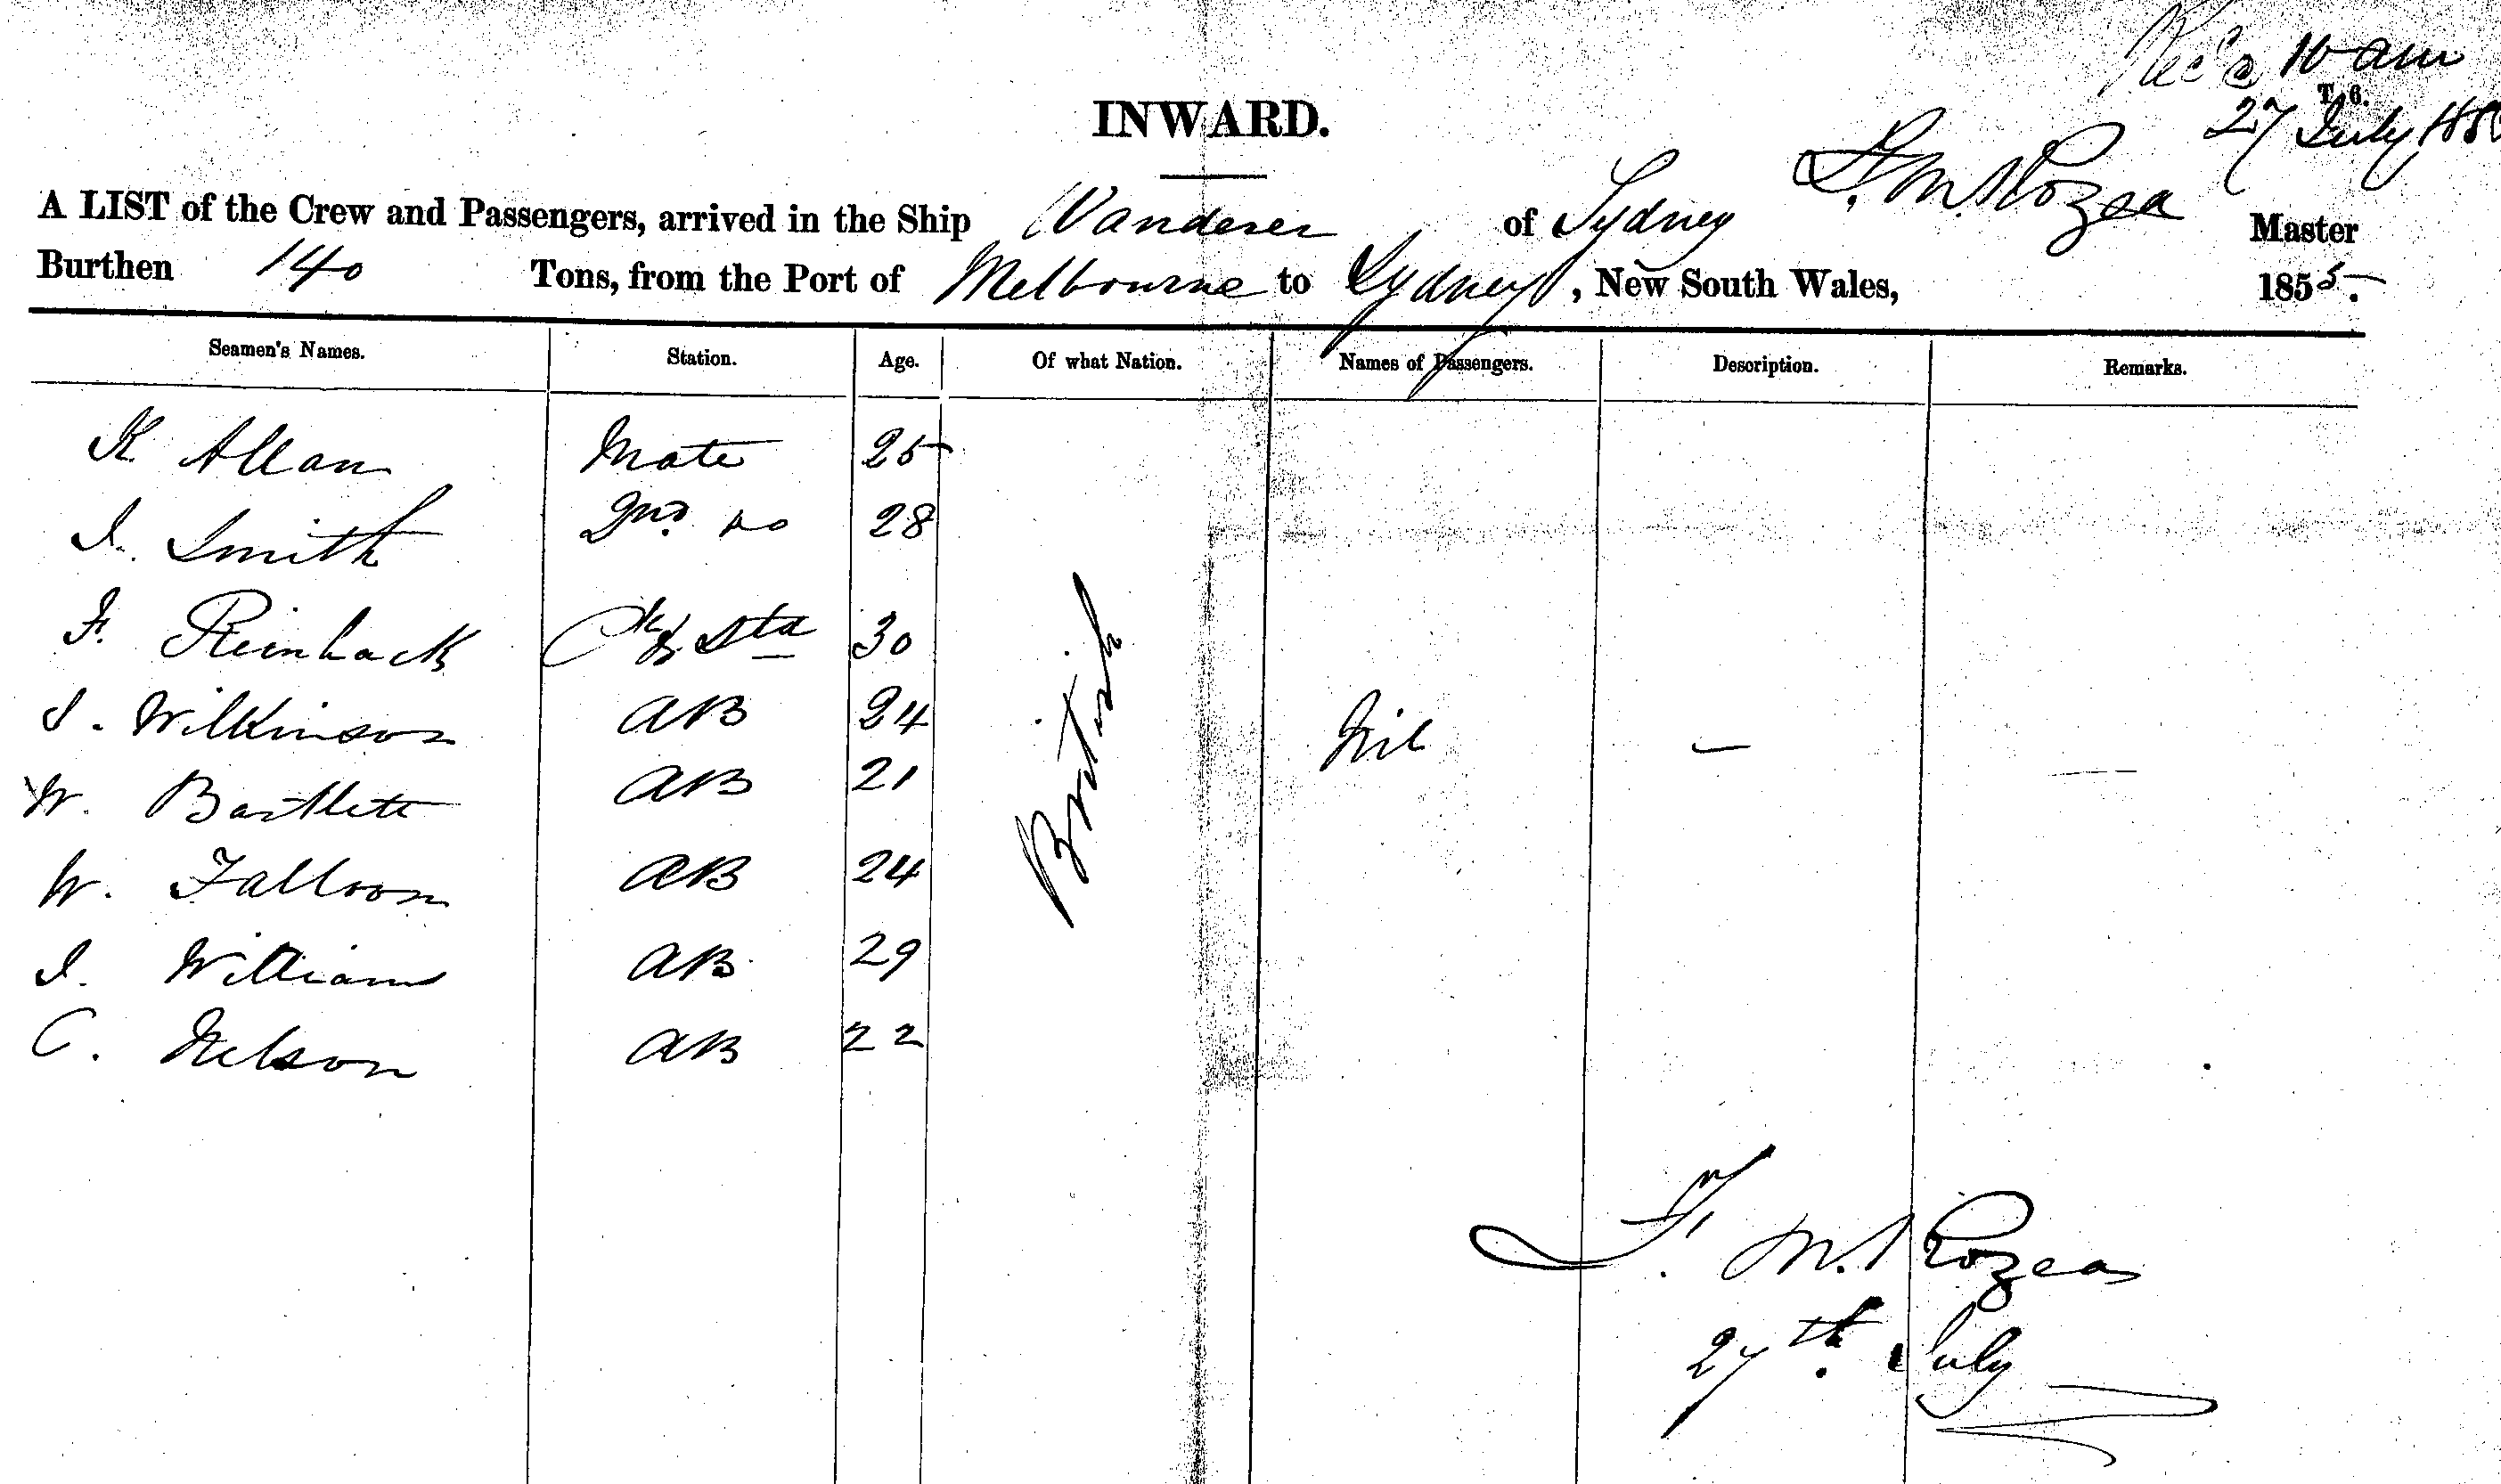 Rec'd 10 am
T. 6.
27 July 185
INWARD.
A LIST of the Crew and Passengers, arrived in the Ship Wanderer of Sydney F. M. Rozea Master
Burthen 140 Tons, from the Port of Melbourne to Sydney, New South Wales, 1855.
Seamen's Names. Station. Age. Of what Nation. Names of Passengers. Description. Remarks.
K Allan Mate 25
J. Smith 2nd do 28
F. Reinhack Ck & Std 30
J. Wilkinson AB 24 Nil — —
W. Bartlett AB 21
W. Falloon AB 24
J. William AB 29
C. Nelson AB 22
British
F. M. Rozea
27th July